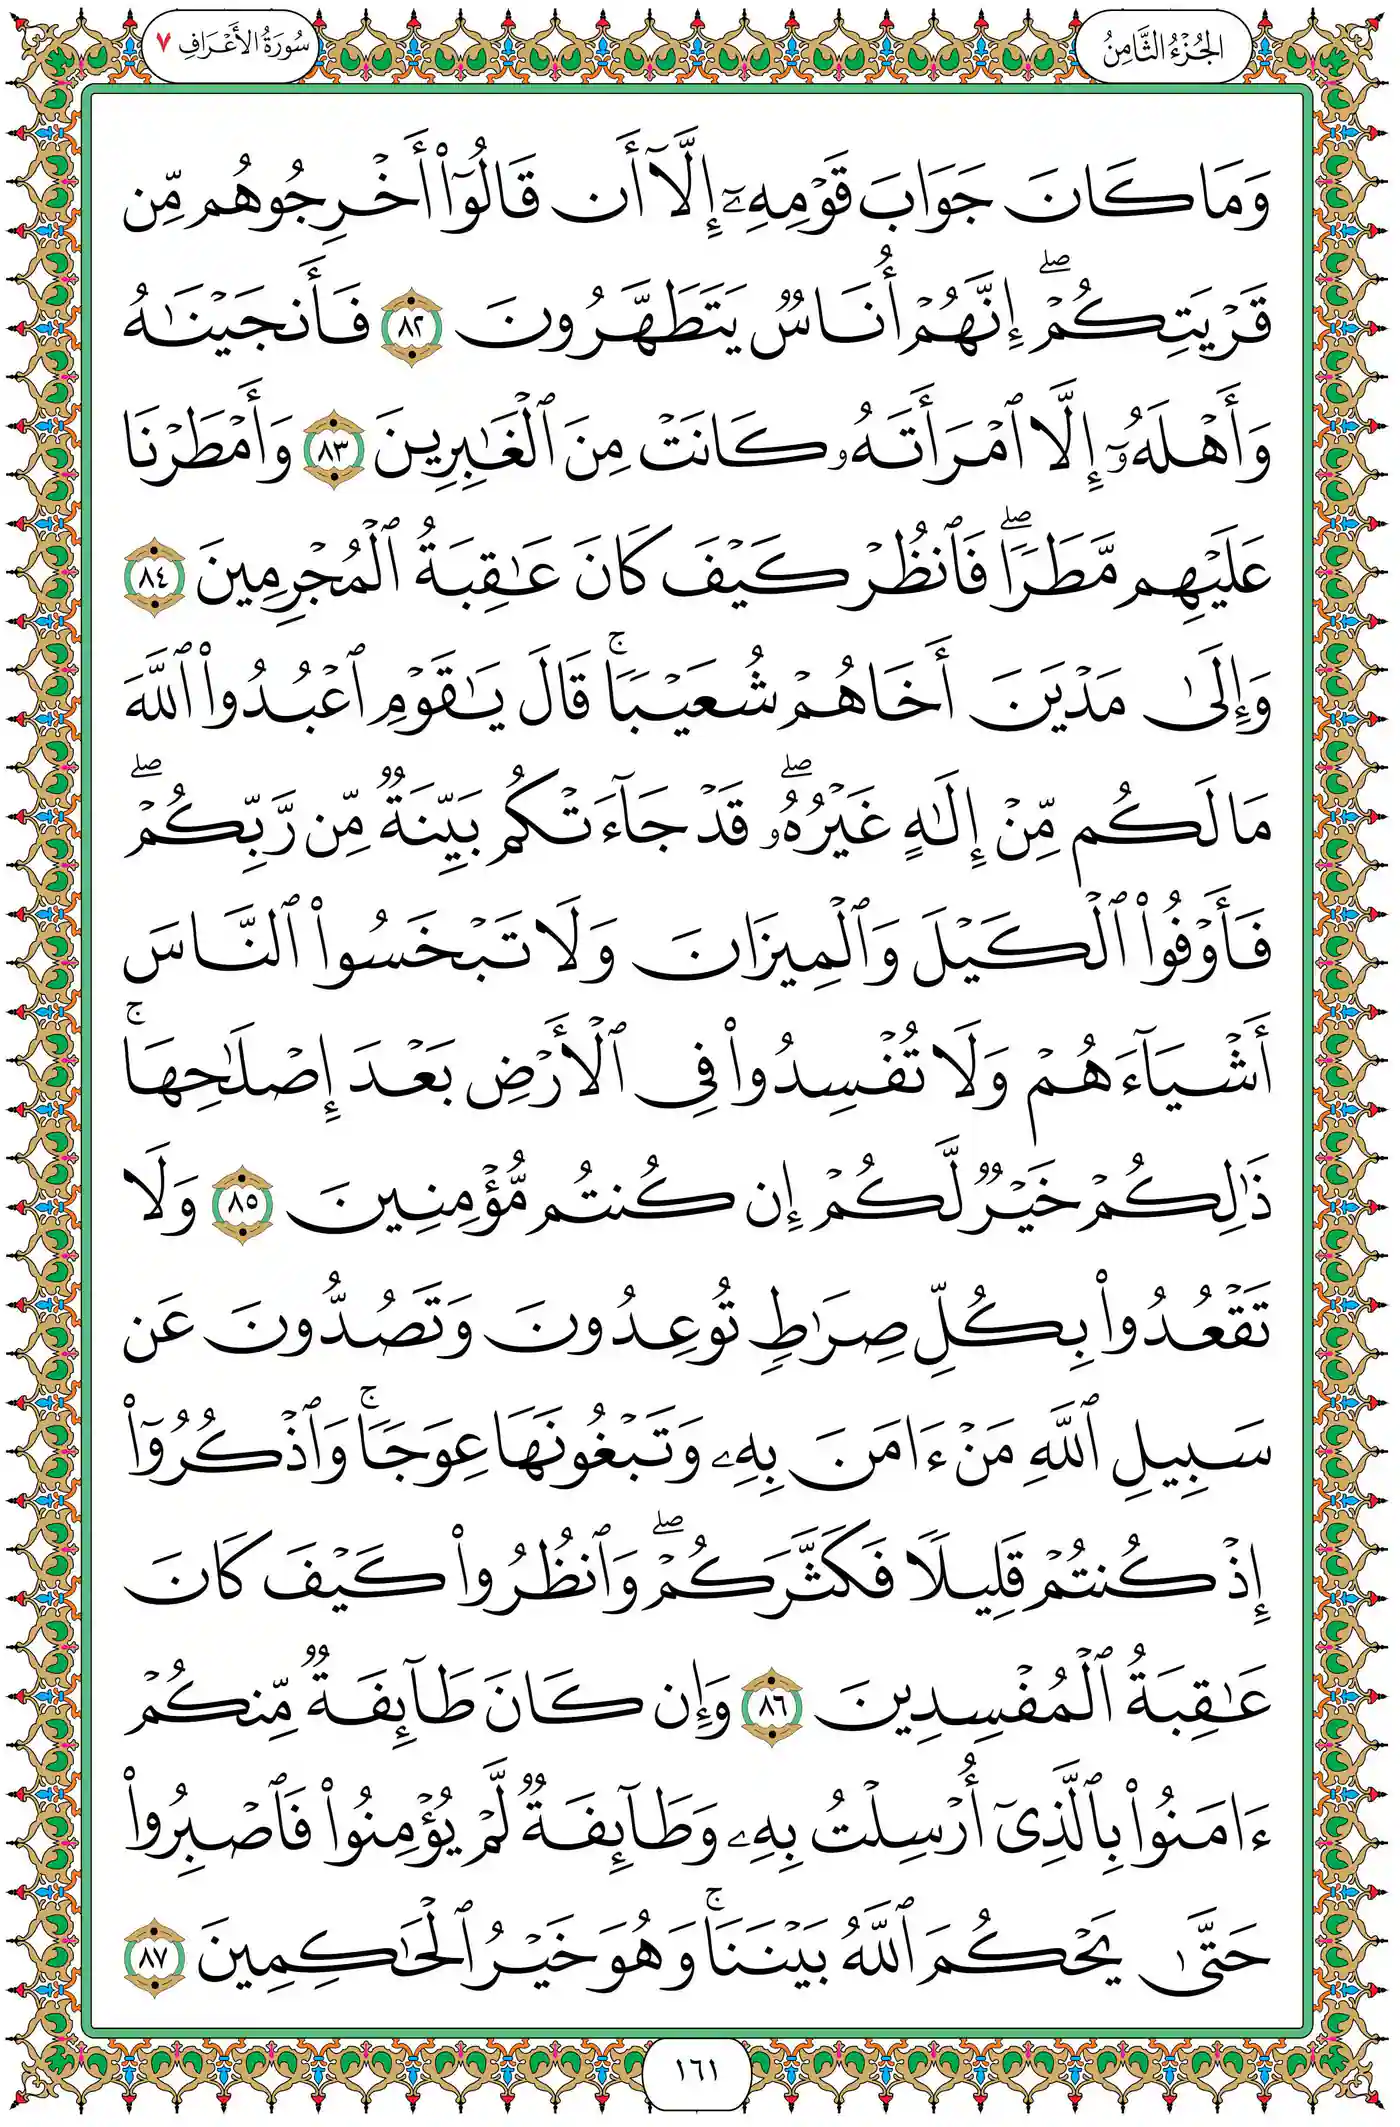 الجُزْءُ الثَّامِنُ
سُورَةُ الأَعْرَافِ ٧
وَمَا كَانَ جَوَابَ قَوْمِهِۦٓ إِلَّآ أَن قَالُوٓا۟ أَخْرِجُوهُم مِّن
قَرْيَتِكُمْ ۖ إِنَّهُمْ أُنَاسٌ يَتَطَهَّرُونَ ٨٢ فَأَنجَيْنَـٰهُ
وَأَهْلَهُۥٓ إِلَّا ٱمْرَأَتَهُۥ كَانَتْ مِنَ ٱلْغَـٰبِرِينَ ٨٣ وَأَمْطَرْنَا
عَلَيْهِم مَّطَرًا ۖ فَٱنظُرْ كَيْفَ كَانَ عَـٰقِبَةُ ٱلْمُجْرِمِينَ ٨٤
وَإِلَىٰ مَدْيَنَ أَخَاهُمْ شُعَيْبًا ۚ قَالَ يَـٰقَوْمِ ٱعْبُدُوا۟ ٱللَّهَ
مَا لَكُم مِّنْ إِلَـٰهٍ غَيْرُهُۥ ۖ قَدْ جَآءَتْكُم بَيِّنَةٌ مِّن رَّبِّكُمْ ۖ
فَأَوْفُوا۟ ٱلْكَيْلَ وَٱلْمِيزَانَ وَلَا تَبْخَسُوا۟ ٱلنَّاسَ
أَشْيَآءَهُمْ وَلَا تُفْسِدُوا۟ فِى ٱلْأَرْضِ بَعْدَ إِصْلَـٰحِهَا ۚ
ذَٰلِكُمْ خَيْرٌ لَّكُمْ إِن كُنتُم مُّؤْمِنِينَ ٨٥ وَلَا
تَقْعُدُوا۟ بِكُلِّ صِرَٰطٍ تُوعِدُونَ وَتَصُدُّونَ عَن
سَبِيلِ ٱللَّهِ مَنْ ءَامَنَ بِهِۦ وَتَبْغُونَهَا عِوَجًا ۚ وَٱذْكُرُوٓا۟
إِذْ كُنتُمْ قَلِيلًا فَكَثَّرَكُمْ ۖ وَٱنظُرُوا۟ كَيْفَ كَانَ
عَـٰقِبَةُ ٱلْمُفْسِدِينَ ٨٦ وَإِن كَانَ طَآئِفَةٌ مِّنكُمْ
ءَامَنُوا۟ بِٱلَّذِىٓ أُرْسِلْتُ بِهِۦ وَطَآئِفَةٌ لَّمْ يُؤْمِنُوا۟ فَٱصْبِرُوا۟
حَتَّىٰ يَحْكُمَ ٱللَّهُ بَيْنَنَا ۚ وَهُوَ خَيْرُ ٱلْحَـٰكِمِينَ ٨٧
١٦١